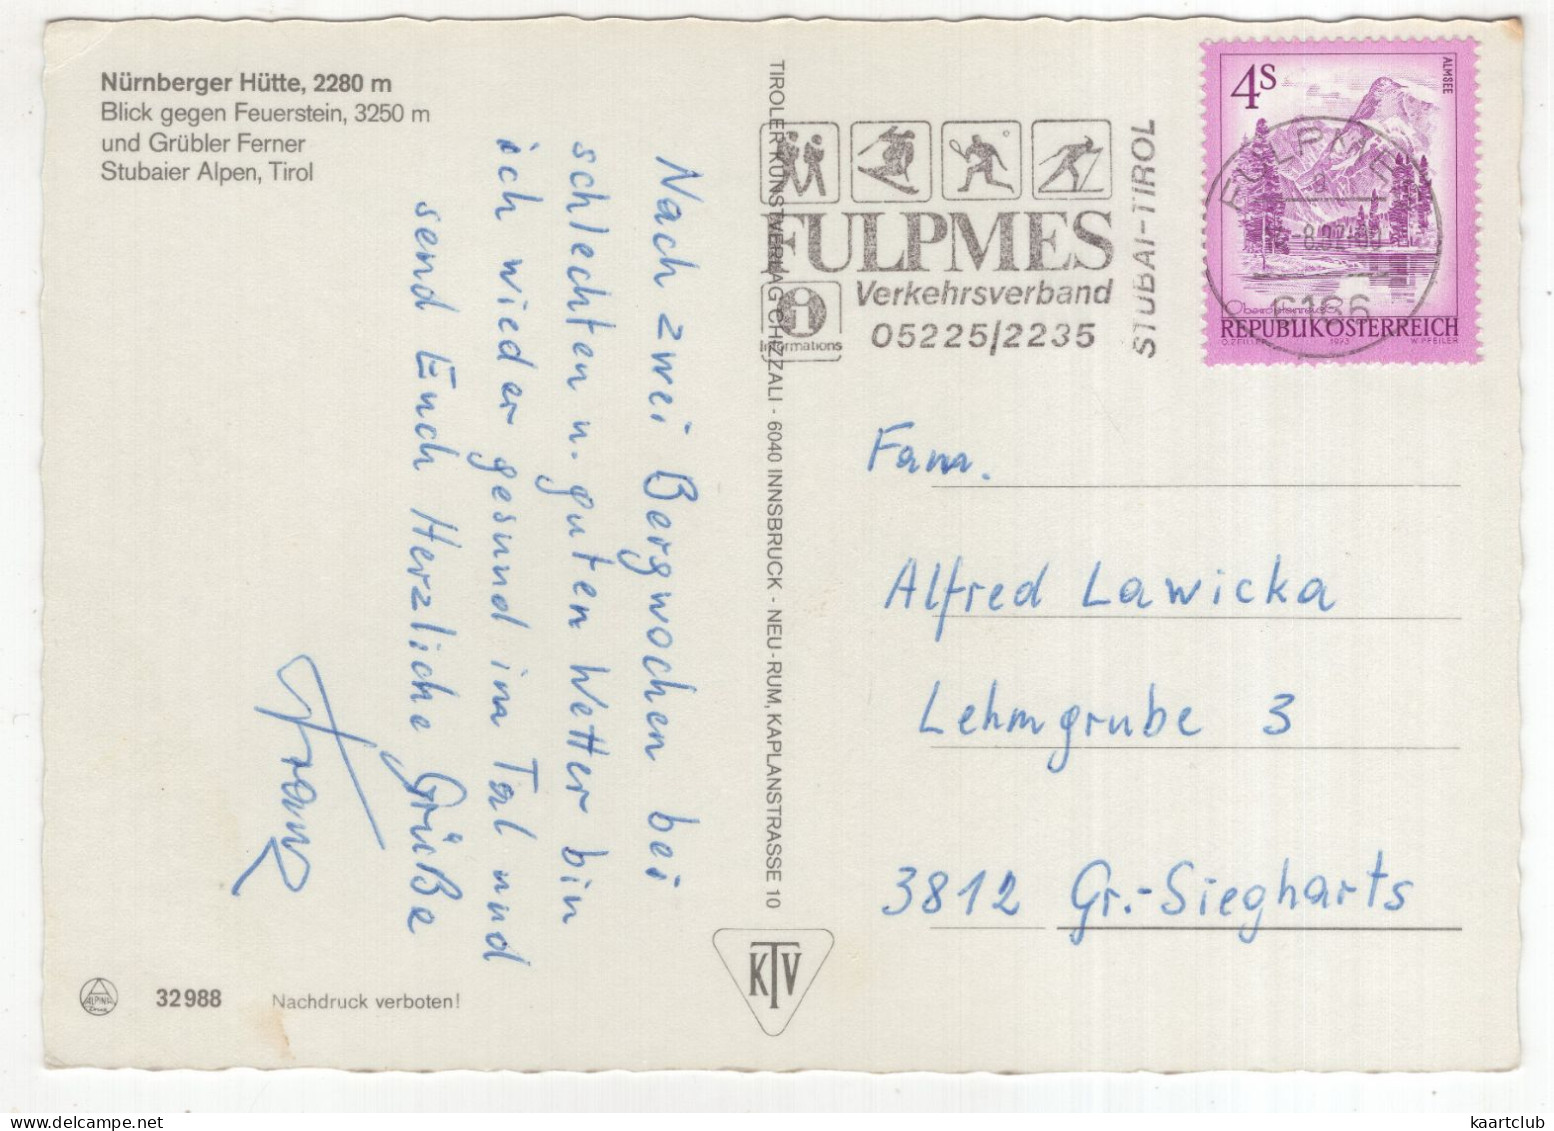 Nürnberger Hütte, 2280 m
Blick gegen Feuerstein, 3250 m
und Grübler Ferner
Stubaier Alpen, Tirol
Nach zwei Bergwochen bei
schlechten u. guten Wetter bin
ich wieder gesund im Tal und
send Euch Herzliche Grüße
Franz
32988
Nachdruck verboten!
TIROLER KUNSTVERLAG CHIZZALI - 6040 INNSBRUCK - NEU-RUM, KAPLANSTRASSE 10
KTV
FULPMES
Verkehrsverband
05225/2235
i
Informations
STUBAI-TIROL
4S
ALMSEE
FULPMES
6166
REPUBLIK ÖSTERREICH
1973
W. PFEILER
Fam.
Alfred Lawicka
Lehmgrube 3
3812 Gr.-Siegharts
kaartclub